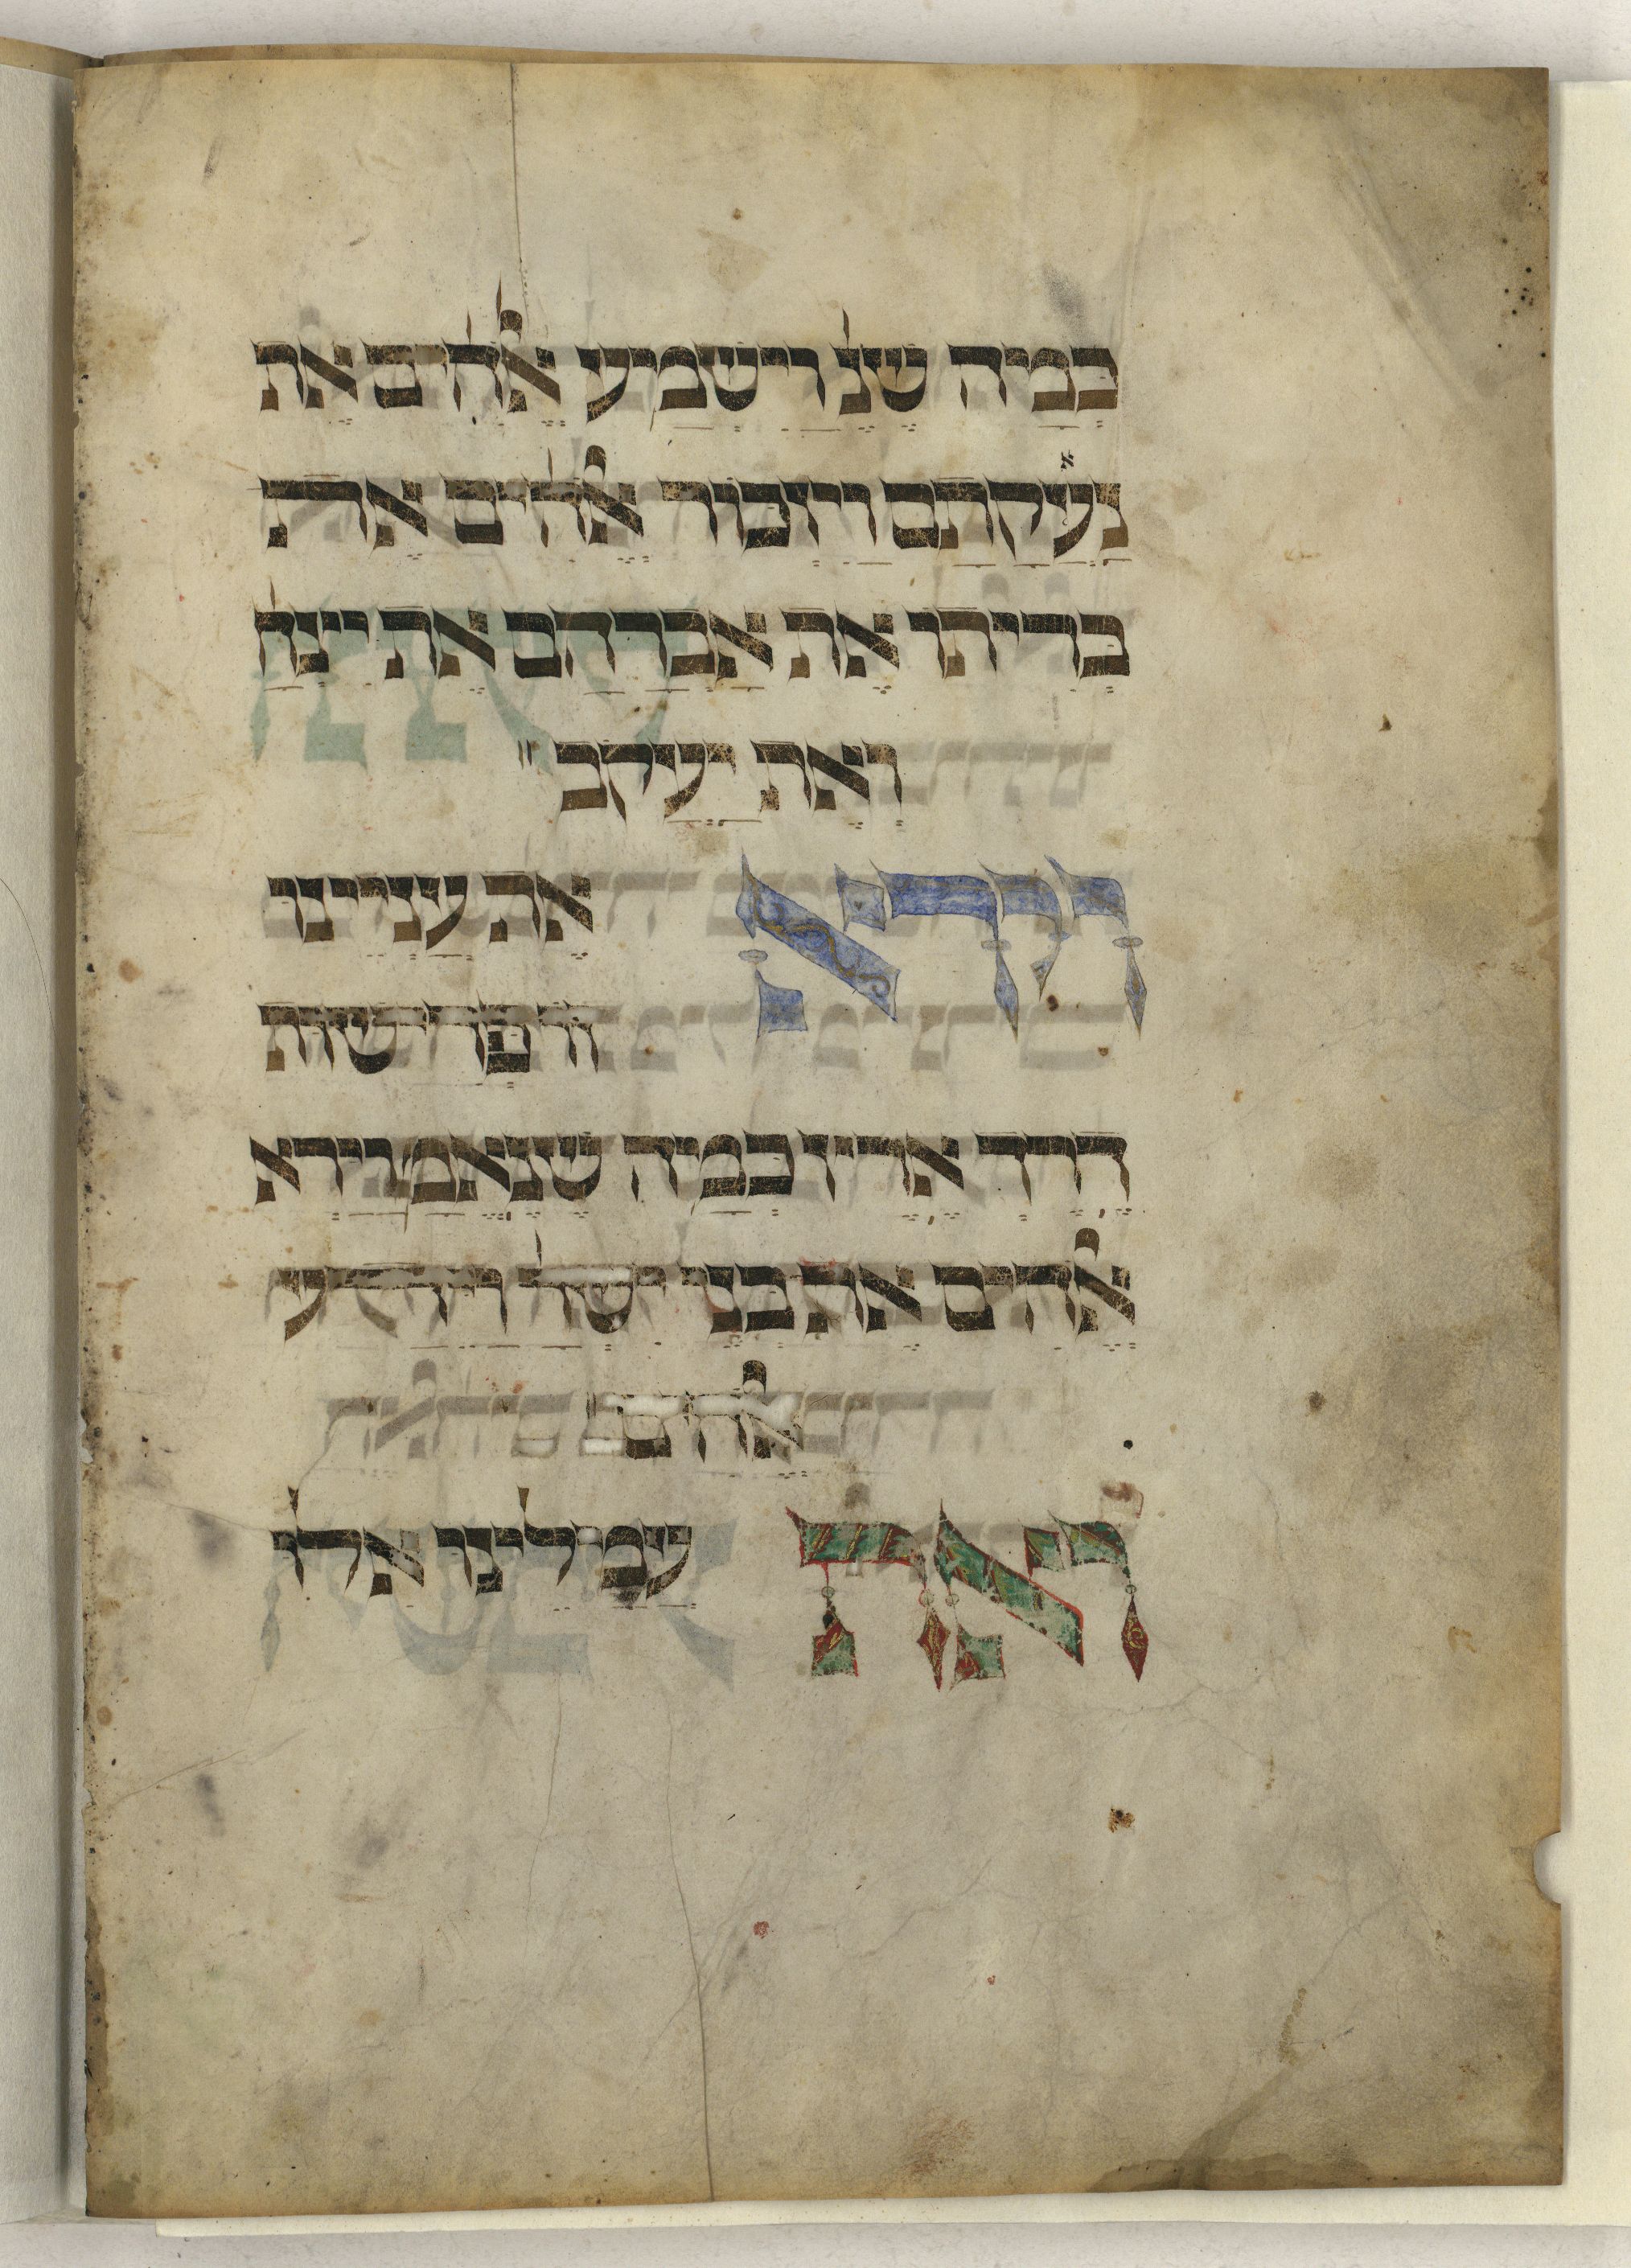 כמה שנ וישמע אלהים את
נעקתם ויזכור אלהים את
בריתו את אברהם את יצח
ואת יעקב
וירא את עניינו
זו פרישות
דרך ארץ כמה שנאמ וירא
אלהים את בני וידע
אלהים
ואת עמלינו אלו